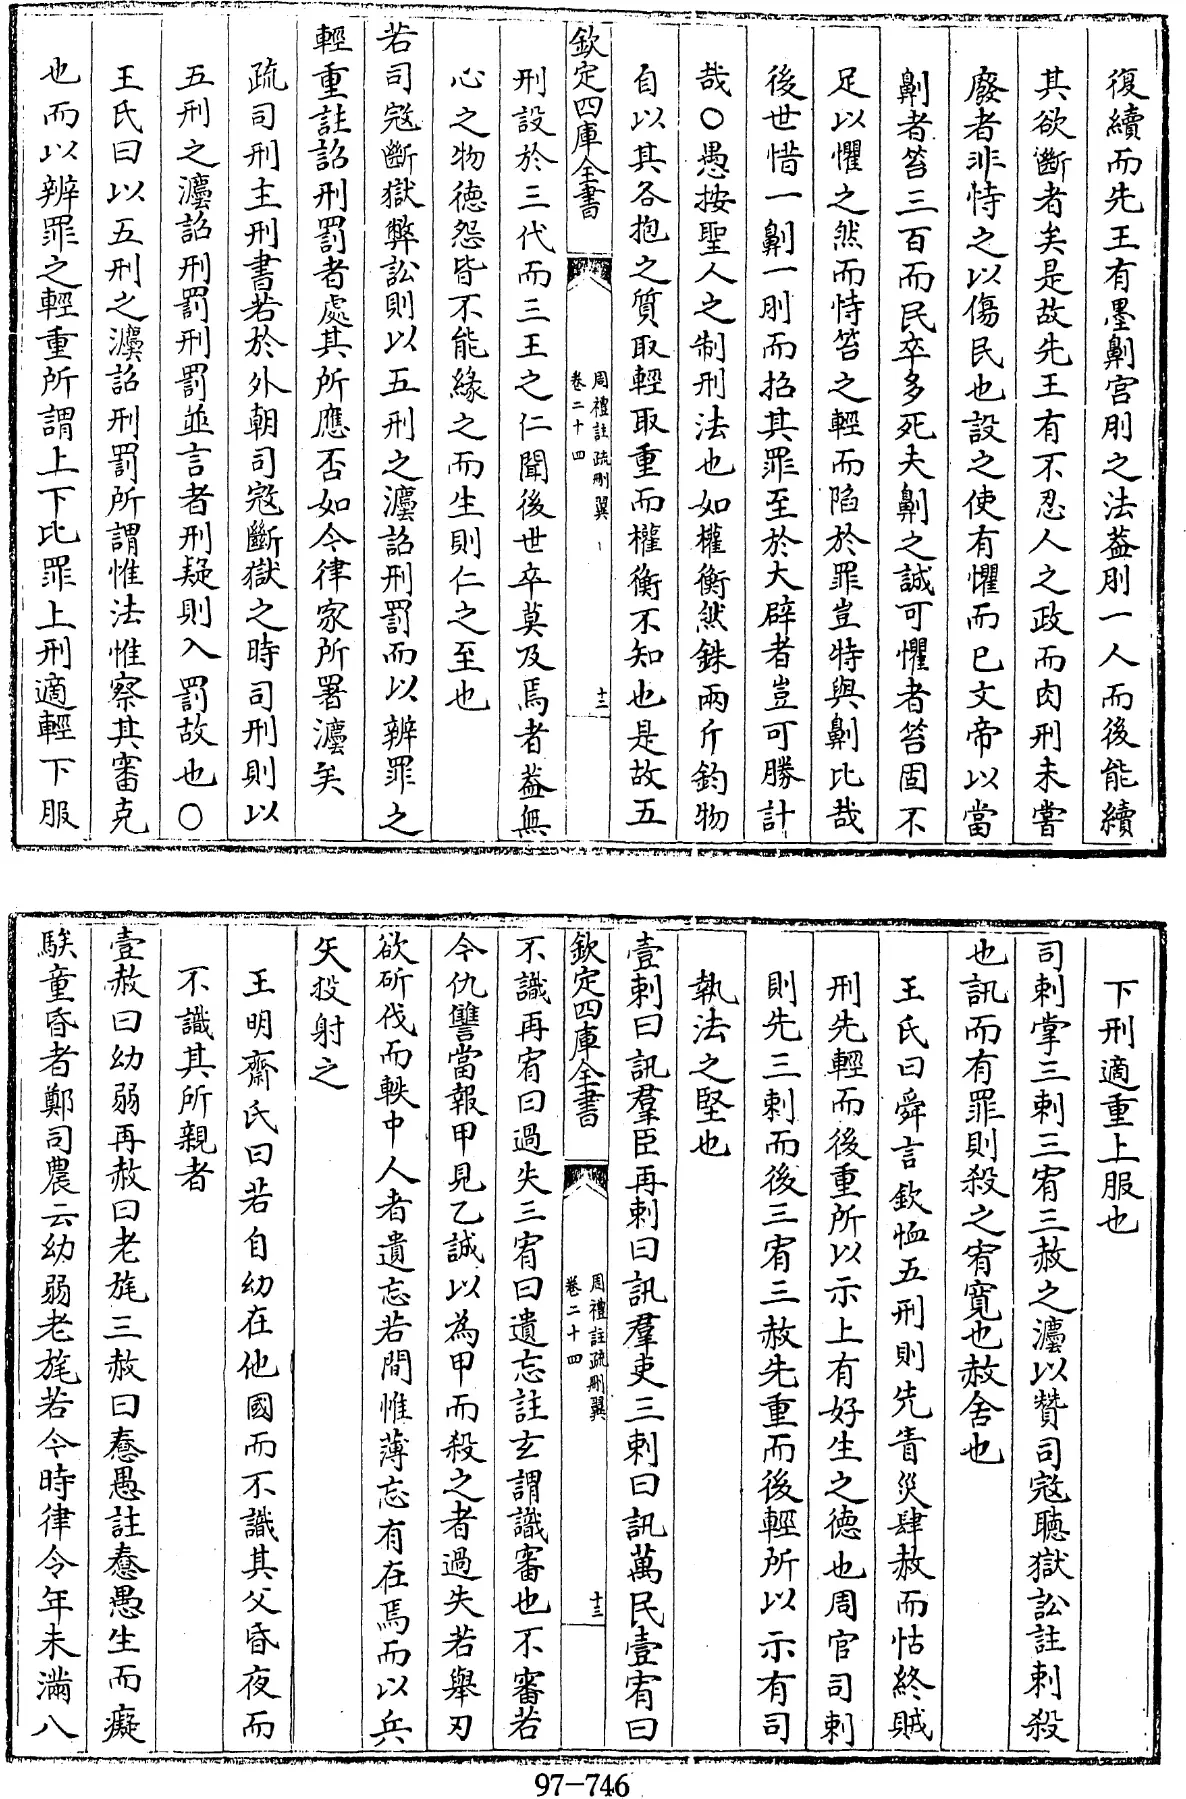 復續而先王有墨劓宫刖之法葢刖一人而後能續
其欲斷者矣是故先王有不忍人之政而肉刑未嘗
廢者非恃之以傷民也設之使有懼而已文帝以當
劓者笞三百而民卒多死夫劓之誠可懼者笞固不
足以懼之然而恃笞之輕而陷於罪豈特與劓比哉
後世惜一劓一刖而招其罪至於大辟者豈可勝計
哉○愚按聖人之制刑法也如權衡然銖兩斤鈞物
自以其各抱之質取輕取重而權衡不知也是故五
欽定四庫全書
周禮註疏刪翼
卷二十四
十二
刑設於三代而三王之仁聞後世卒莫及焉者葢無
心之物德怨皆不能緣之而生則仁之至也
若司宼斷獄弊訟則以五刑之灋詔刑罰而以辨罪之
輕重註詔刑罰者處其所應否如今律家所署灋矣
疏司刑主刑書若於外朝司宼斷獄之時司刑則以
五刑之灋詔刑罰刑罰並言者刑疑則入罰故也○
王氏曰以五刑之灋詔刑罰所謂惟法惟察其審克
也而以辨罪之輕重所謂上下比罪上刑適輕下服
下刑適重上服也
司刺掌三刺三宥三赦之灋以贊司宼聽獄訟註刺殺
也訊而有罪則殺之宥寛也赦舍也
王氏曰舜言欽恤五刑則先眚災肆赦而怙終賊
刑先輕而後重所以示上有好生之德也周官司刺
則先三刺而後三宥三赦先重而後輕所以示有司
執法之堅也
壹刺曰訊羣臣再刺曰訊羣吏三刺曰訊萬民壹宥曰
欽定四庫全書
周禮註疏刪翼
卷二十四
十三
不識再宥曰過失三宥曰遺忘註玄謂識審也不審若
今仇讐當報甲見乙誠以為甲而殺之者過失若舉刃
欲斫伐而軼中人者遺忘若間惟薄忘有在焉而以兵
矢投射之
王明齋氏曰若自幼在他國而不識其父昏夜而
不識其所親者
壹赦曰幼弱再赦曰老旄三赦曰憃愚註憃愚生而癡
騃童昏者鄭司農云幼弱老旄若今時律令年未滿八
97-746